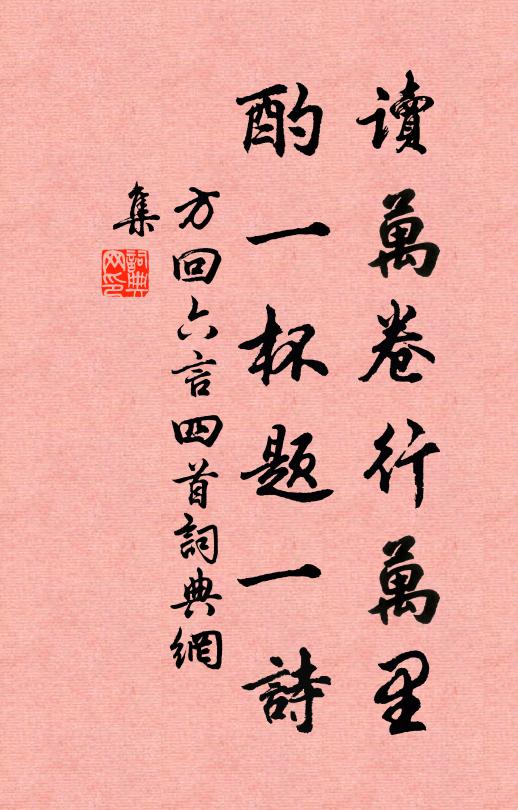 讀萬卷行萬里
酌一杯題一詩
方回六言四首詞典網
集
詞典
网印